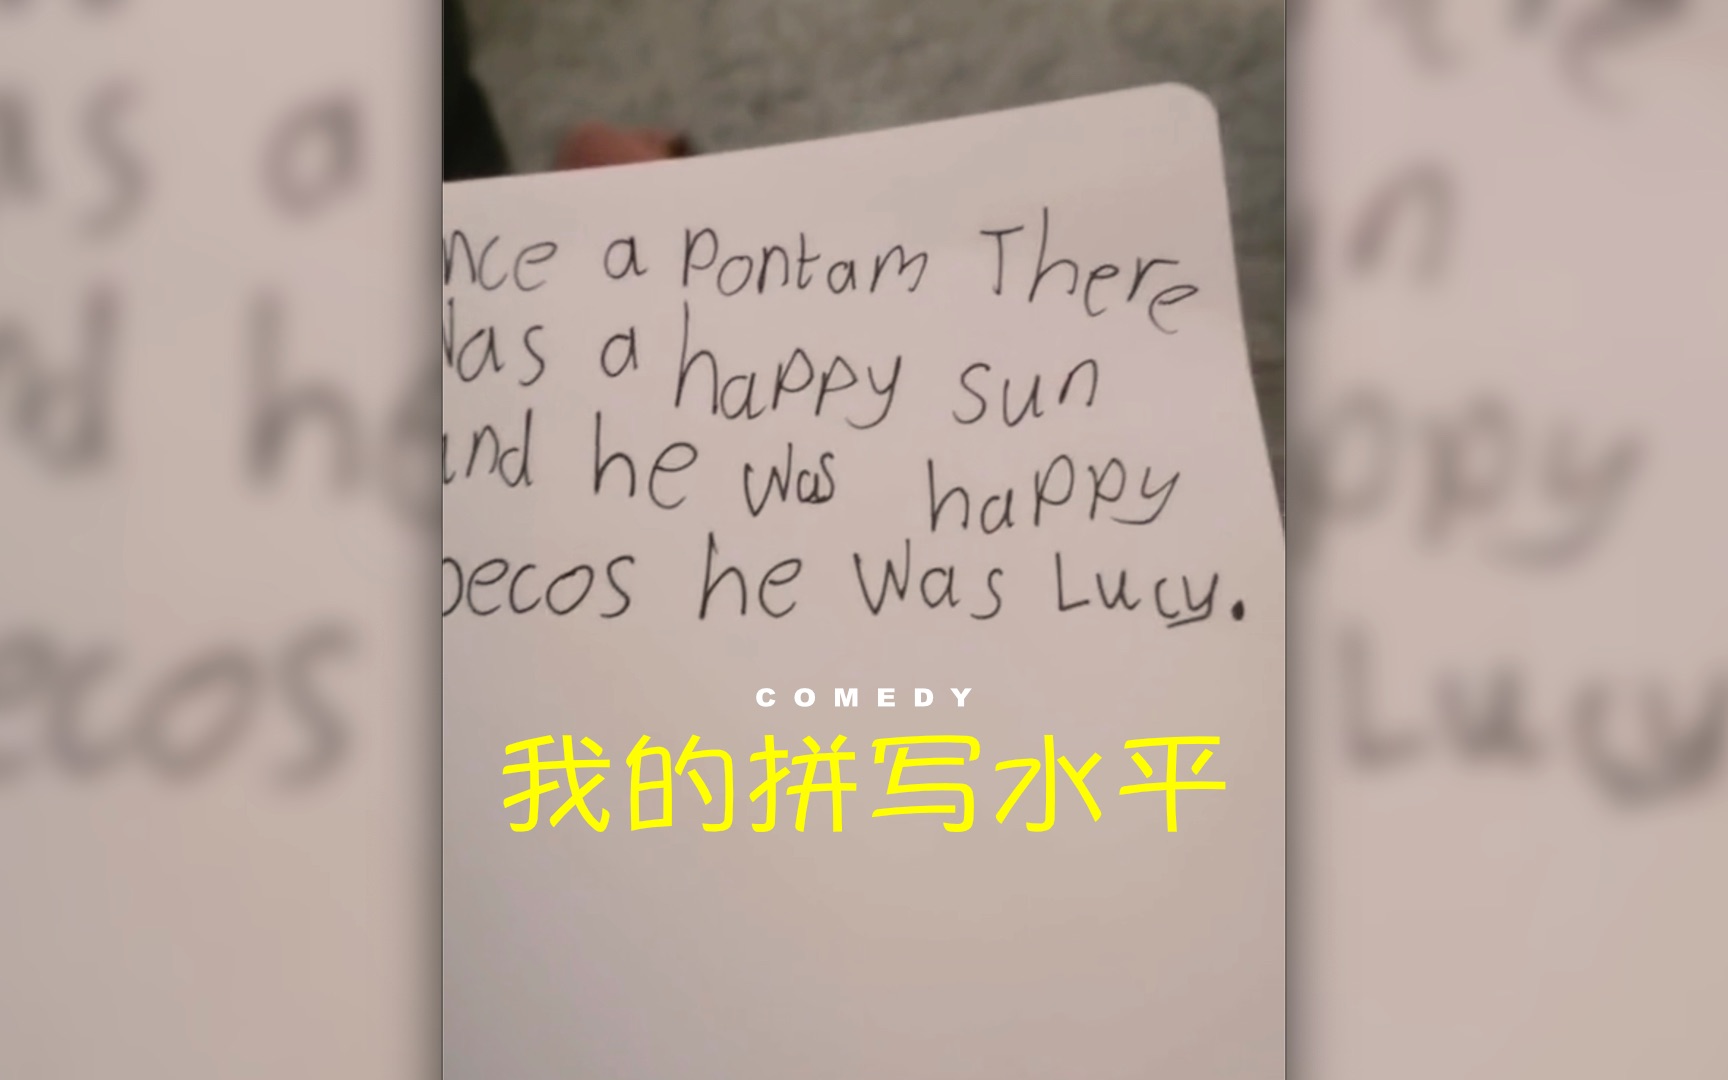 nce a Pontam There
Was a happy sun
and he was happy
becos he Was Lucy.
COMEDY
我的拼写水平